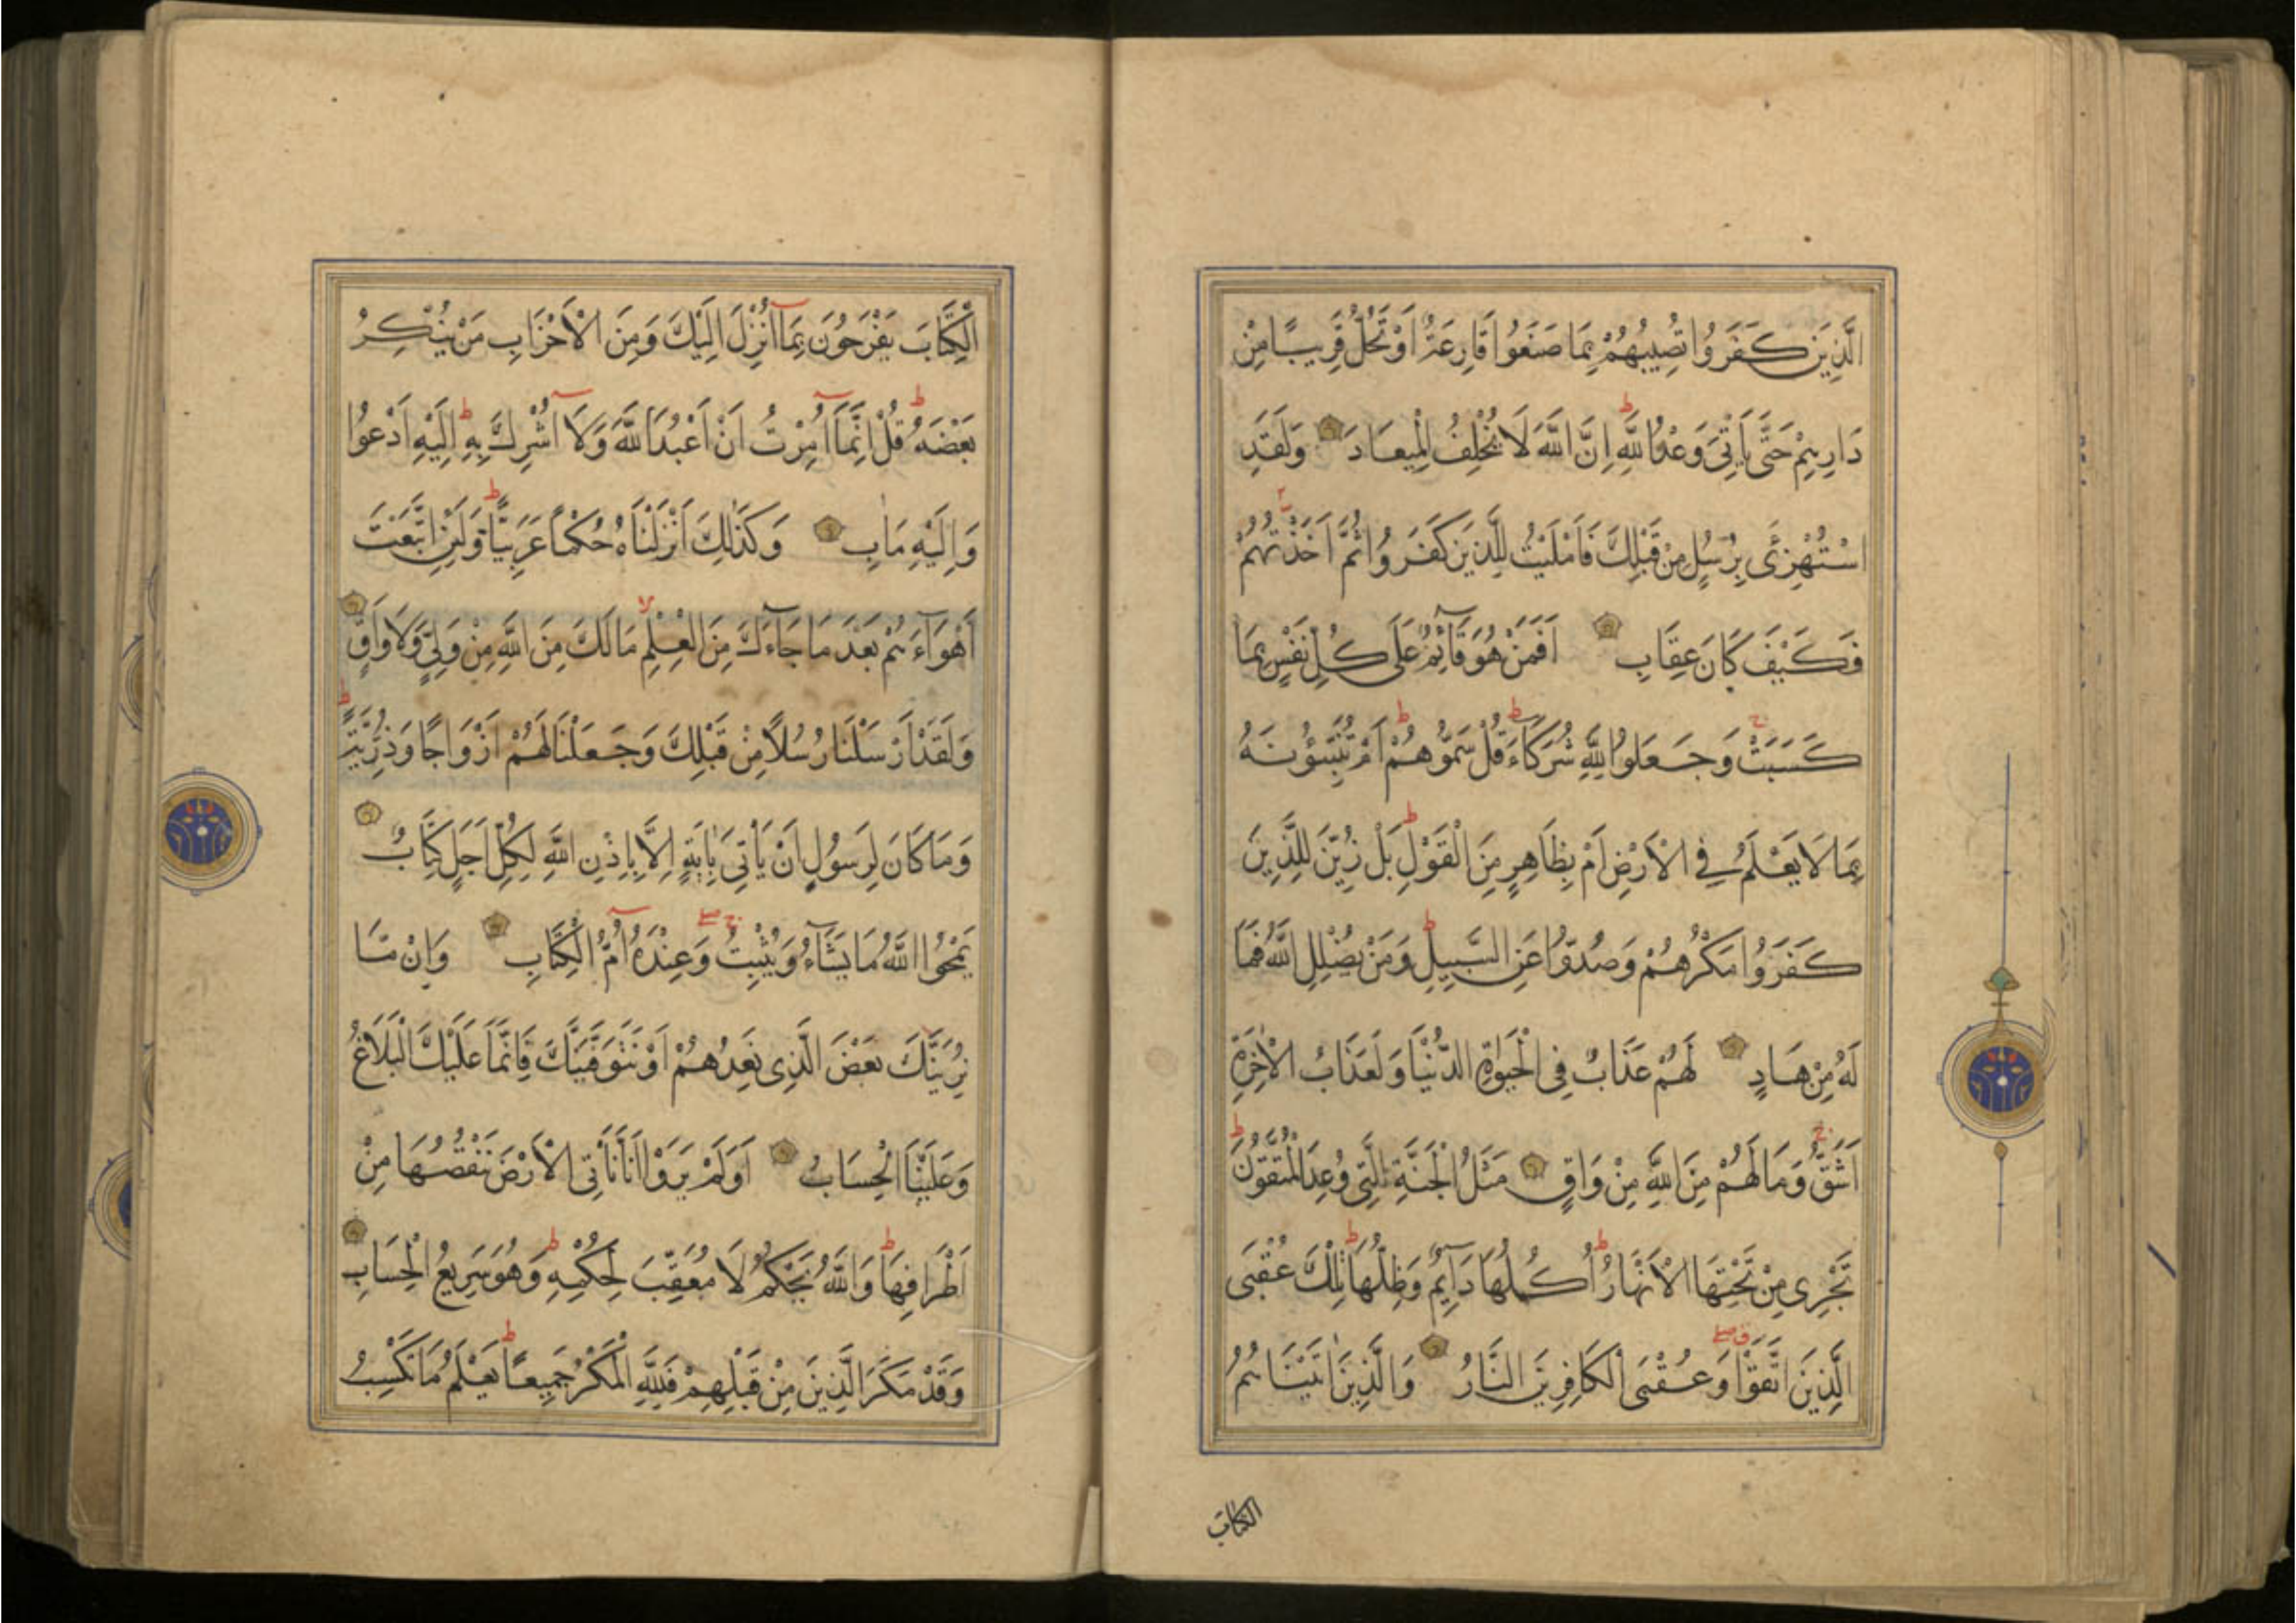 الَّذِينَ كَفَرُوا تُصِيبُهُمْ بِمَا صَنَعُوا قَارِعَةٌ اَوْ تَحُلُّ قَرِيبًا مِنْ
دَارِهِمْ حَتَّى يَأْتِيَ وَعْدُ اللَّهِ اِنَّ اللَّهَ لَا يُخْلِفُ الْمِيعَادَ وَلَقَدِ
اسْتُهْزِئَ بِرُسُلٍ مِنْ قَبْلِكَ فَاَمْلَيْتُ لِلَّذِينَ كَفَرُوا ثُمَّ اَخَذْتُهُمْ
فَكَيْفَ كَانَ عِقَابِ اَفَمَنْ هُوَ قَآئِمٌ عَلَى كُلِّ نَفْسٍ بِمَا
كَسَبَتْ وَجَعَلُوا لِلَّهِ شُرَكَآءَ قُلْ سَمُّوهُمْ اَمْ تُنَبِّؤُنَهُ
بِمَا لَا يَعْلَمُ فِي الْاَرْضِ اَمْ بِظَاهِرٍ مِنَ الْقَوْلِ بَلْ زُيِّنَ لِلَّذِينَ
كَفَرُوا مَكْرُهُمْ وَصُدُّوا عَنِ السَّبِيلِ وَمَنْ يُضْلِلِ اللَّهُ فَمَا
لَهُ مِنْ هَادٍ لَهُمْ عَذَابٌ فِي الْحَيٰوةِ الدُّنْيَا وَلَعَذَابُ الْاٰخِرَةِ
اَشَقُّ وَمَا لَهُمْ مِنَ اللَّهِ مِنْ وَاقٍ مَثَلُ الْجَنَّةِ الَّتِي وُعِدَ الْمُتَّقُونَ
تَجْرِي مِنْ تَحْتِهَا الْاَنْهَارُ اُكُلُهَا دَآئِمٌ وَظِلُّهَا تِلْكَ عُقْبَى
الَّذِينَ اتَّقَوْا وَعُقْبَى الْكَافِرِينَ النَّارُ وَالَّذِينَ اٰتَيْنَاهُمُ
الكتاب
الْكِتَابَ يَفْرَحُونَ بِمَآ اُنْزِلَ اِلَيْكَ وَمِنَ الْاَحْزَابِ مَنْ يُنْكِرُ
بَعْضَهُ قُلْ اِنَّمَآ اُمِرْتُ اَنْ اَعْبُدَ اللَّهَ وَلَآ اُشْرِكَ بِهِ اِلَيْهِ اَدْعُوا
وَاِلَيْهِ مَاٰبِ وَكَذٰلِكَ اَنْزَلْنَاهُ حُكْمًا عَرَبِيًّا وَلَئِنِ اتَّبَعْتَ
اَهْوَآءَهُمْ بَعْدَ مَا جَآءَكَ مِنَ الْعِلْمِ مَا لَكَ مِنَ اللَّهِ مِنْ وَلِيٍّ وَلَا وَاقٍ
وَلَقَدْ اَرْسَلْنَا رُسُلًا مِنْ قَبْلِكَ وَجَعَلْنَا لَهُمْ اَزْوَاجًا وَذُرِّيَّةً
وَمَا كَانَ لِرَسُولٍ اَنْ يَأْتِيَ بِاٰيَةٍ اِلَّا بِاِذْنِ اللَّهِ لِكُلِّ اَجَلٍ كِتَابٌ
يَمْحُوا اللَّهُ مَا يَشَآءُ وَيُثْبِتُ وَعِنْدَهُ اُمُّ الْكِتَابِ وَاِنْ مَا
نُرِيَنَّكَ بَعْضَ الَّذِي نَعِدُهُمْ اَوْ نَتَوَفَّيَنَّكَ فَاِنَّمَا عَلَيْكَ الْبَلَاغُ
وَعَلَيْنَا الْحِسَابُ اَوَلَمْ يَرَوْا اَنَّا نَأْتِي الْاَرْضَ نَنْقُصُهَا مِنْ
اَطْرَافِهَا وَاللَّهُ يَحْكُمُ لَا مُعَقِّبَ لِحُكْمِهِ وَهُوَ سَرِيعُ الْحِسَابِ
وَقَدْ مَكَرَ الَّذِينَ مِنْ قَبْلِهِمْ فَلِلَّهِ الْمَكْرُ جَمِيعًا يَعْلَمُ مَا تَكْسِبُ